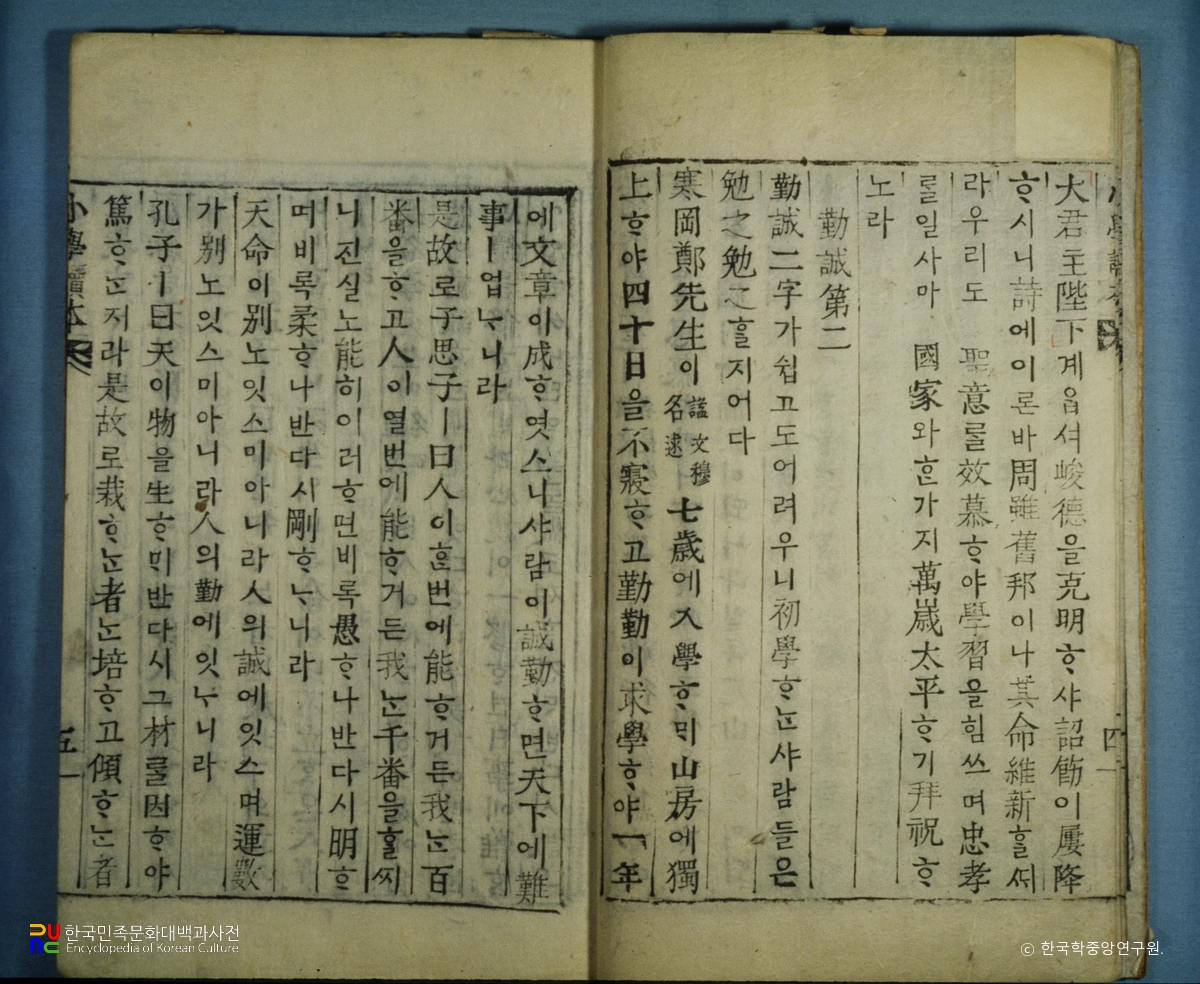 大君主陛下계ᄋᆞᆸ셔峻德을克明ᄒᆞ샤詔飭이屢降
ᄒᆞ시니詩에이론바周雖舊邦이나其命維新ᄒᆞᆯᄉᆡ
라우리도 聖意ᄅᆞᆯ效慕ᄒᆞ야學習을힘쓰며忠孝
ᄅᆞᆯ일사마 國家와ᄒᆞᆫ가지萬歲太平ᄒᆞ기拜祝ᄒᆞ
노라
勤誠第二
勤誠二字가쉽고도어려우니初學ᄒᆞᄂᆞᆫ샤람들은
勉之勉之ᄒᆞᆯ지어다
寒岡鄭先生이 諡文穆 名逑 七歲에入學ᄒᆞᄆᆡ山房에獨
上ᄒᆞ야四十日을不寢ᄒᆞ고勤勤이求學ᄒᆞ야一年
四
에文章이成ᄒᆞ엿스니샤람이誠勤ᄒᆞ면天下에難
事ㅣ업ᄂᆞ니라
是故로子思子ㅣ曰人이ᄒᆞᆫ번에能ᄒᆞ거든我ᄂᆞᆫ百
番을ᄒᆞ고人이열번에能ᄒᆞ거든我ᄂᆞᆫ千番을ᄒᆞᆯ씨
니진실노能히이러ᄒᆞ면비록愚ᄒᆞ나반다시明ᄒᆞ
며비록柔ᄒᆞ나반다시剛ᄒᆞᄂᆞ니라
天命이別노잇스미아니라人의誠에잇스며運數
가別노잇스미아니라人의勤에잇ᄂᆞ니라
孔子ㅣ曰天이物을生ᄒᆞᄆᆡ반다시그材ᄅᆞᆯ因ᄒᆞ야
篤ᄒᆞᄂᆞᆫ지라是故로栽ᄒᆞᄂᆞᆫ者ᄂᆞᆫ培ᄒᆞ고傾ᄒᆞᄂᆞᆫ者
小學讀本
五
한국민족문화대백과사전
Encyclopedia of Korean Culture
ⓒ 한국학중앙연구원.